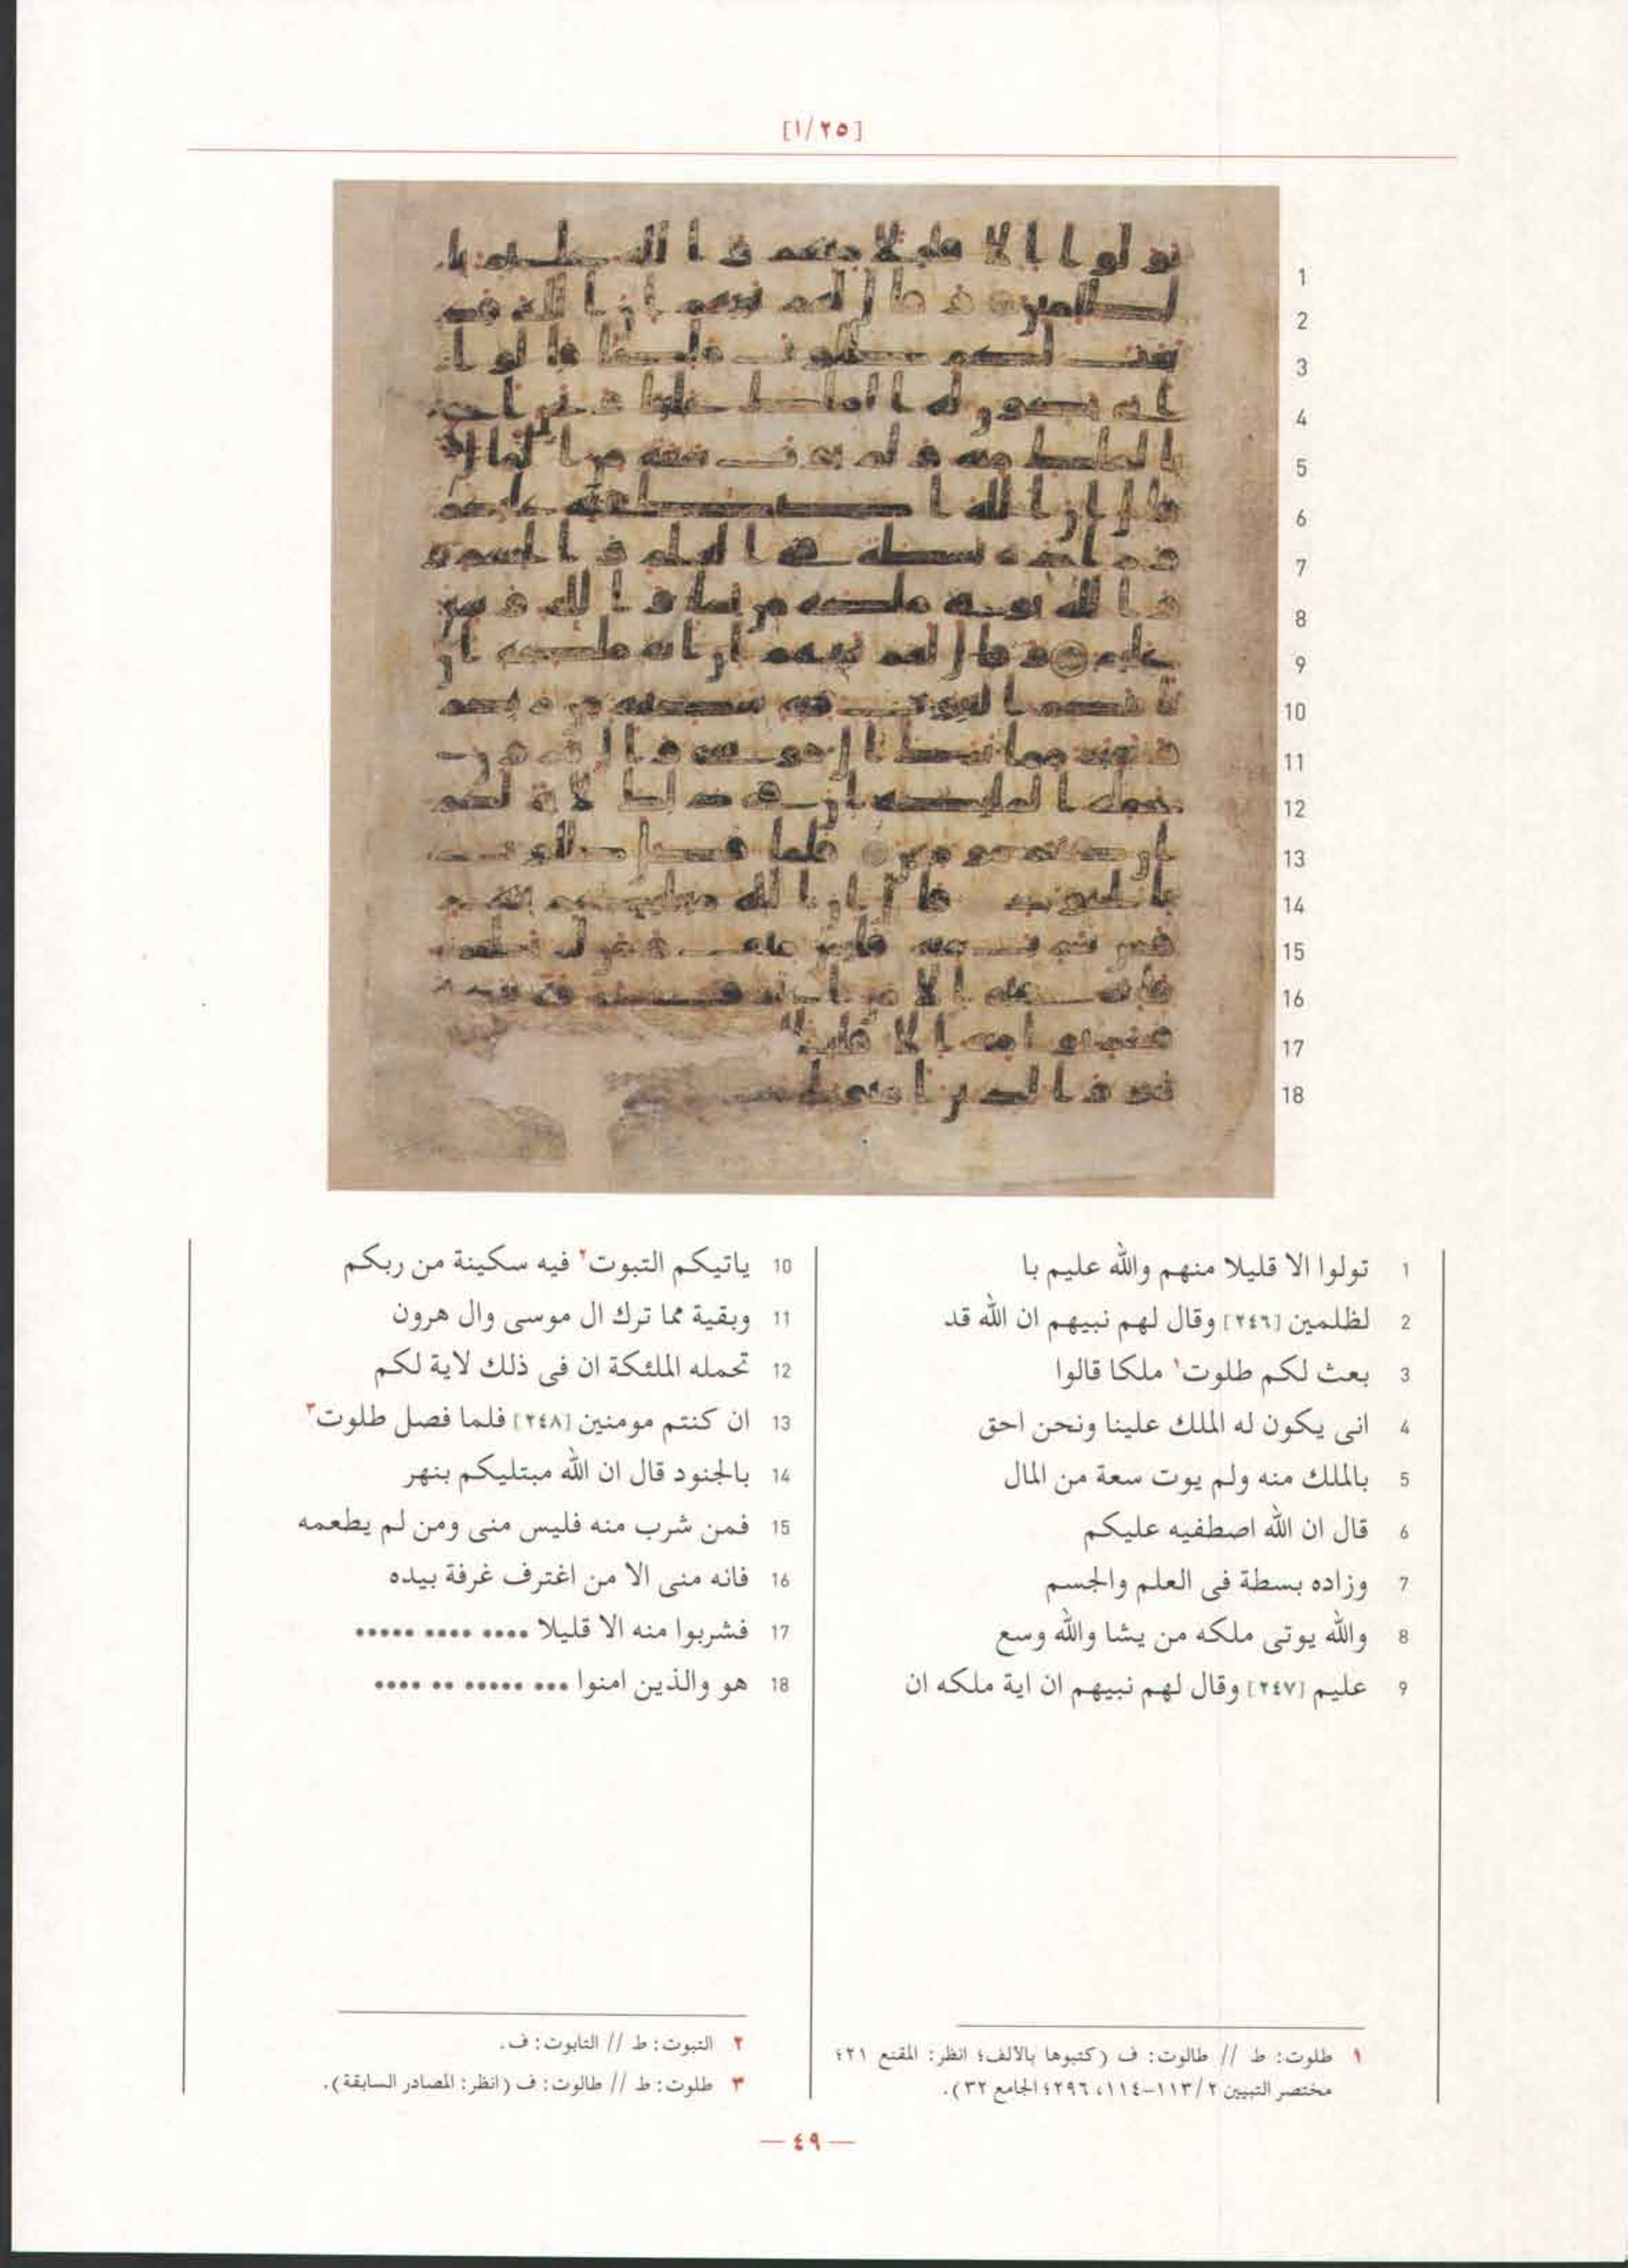 [١/٢٥]
1 تولوا الا قليلا منهم والله عليم با
2 لظلمين [٢٤٦] وقال لهم نبيهم ان الله قد
3 بعث لكم طلوت١ ملكا قالوا
4 انى يكون له الملك علينا ونحن احق
5 بالملك منه ولم يوت سعة من المال
6 قال ان الله اصطفيه عليكم
7 وزاده بسطة فى العلم والجسم
8 والله يوتى ملكه من يشا والله وسع
9 عليم [٢٤٧] وقال لهم نبيهم ان اية ملكه ان
10 ياتيكم التبوت٢ فيه سكينة من ربكم
11 وبقية مما ترك ال موسى وال هرون
12 تحمله الملئكة ان فى ذلك لاية لكم
13 ان كنتم مومنين [٢٤٨] فلما فصل طلوت٣
14 بالجنود قال ان الله مبتليكم بنهر
15 فمن شرب منه فليس منى ومن لم يطعمه
16 فانه منى الا من اغترف غرفة بيده
17 فشربوا منه الا قليلا •••• •••• •••••
18 هو والذين امنوا ••• ••••• •• ••••
١ طلوت: ط // طالوت: ف (كتبوها بالالف؛ انظر: المقنع ٢١؛
مختصر التبيين ١١٣/٢-١١٤، ٢٩٦؛ الجامع ٣٢).
٢ التبوت: ط // التابوت: ف.
٣ طلوت: ط // طالوت: ف (انظر: المصادر السابقة).
— ٤٩ —